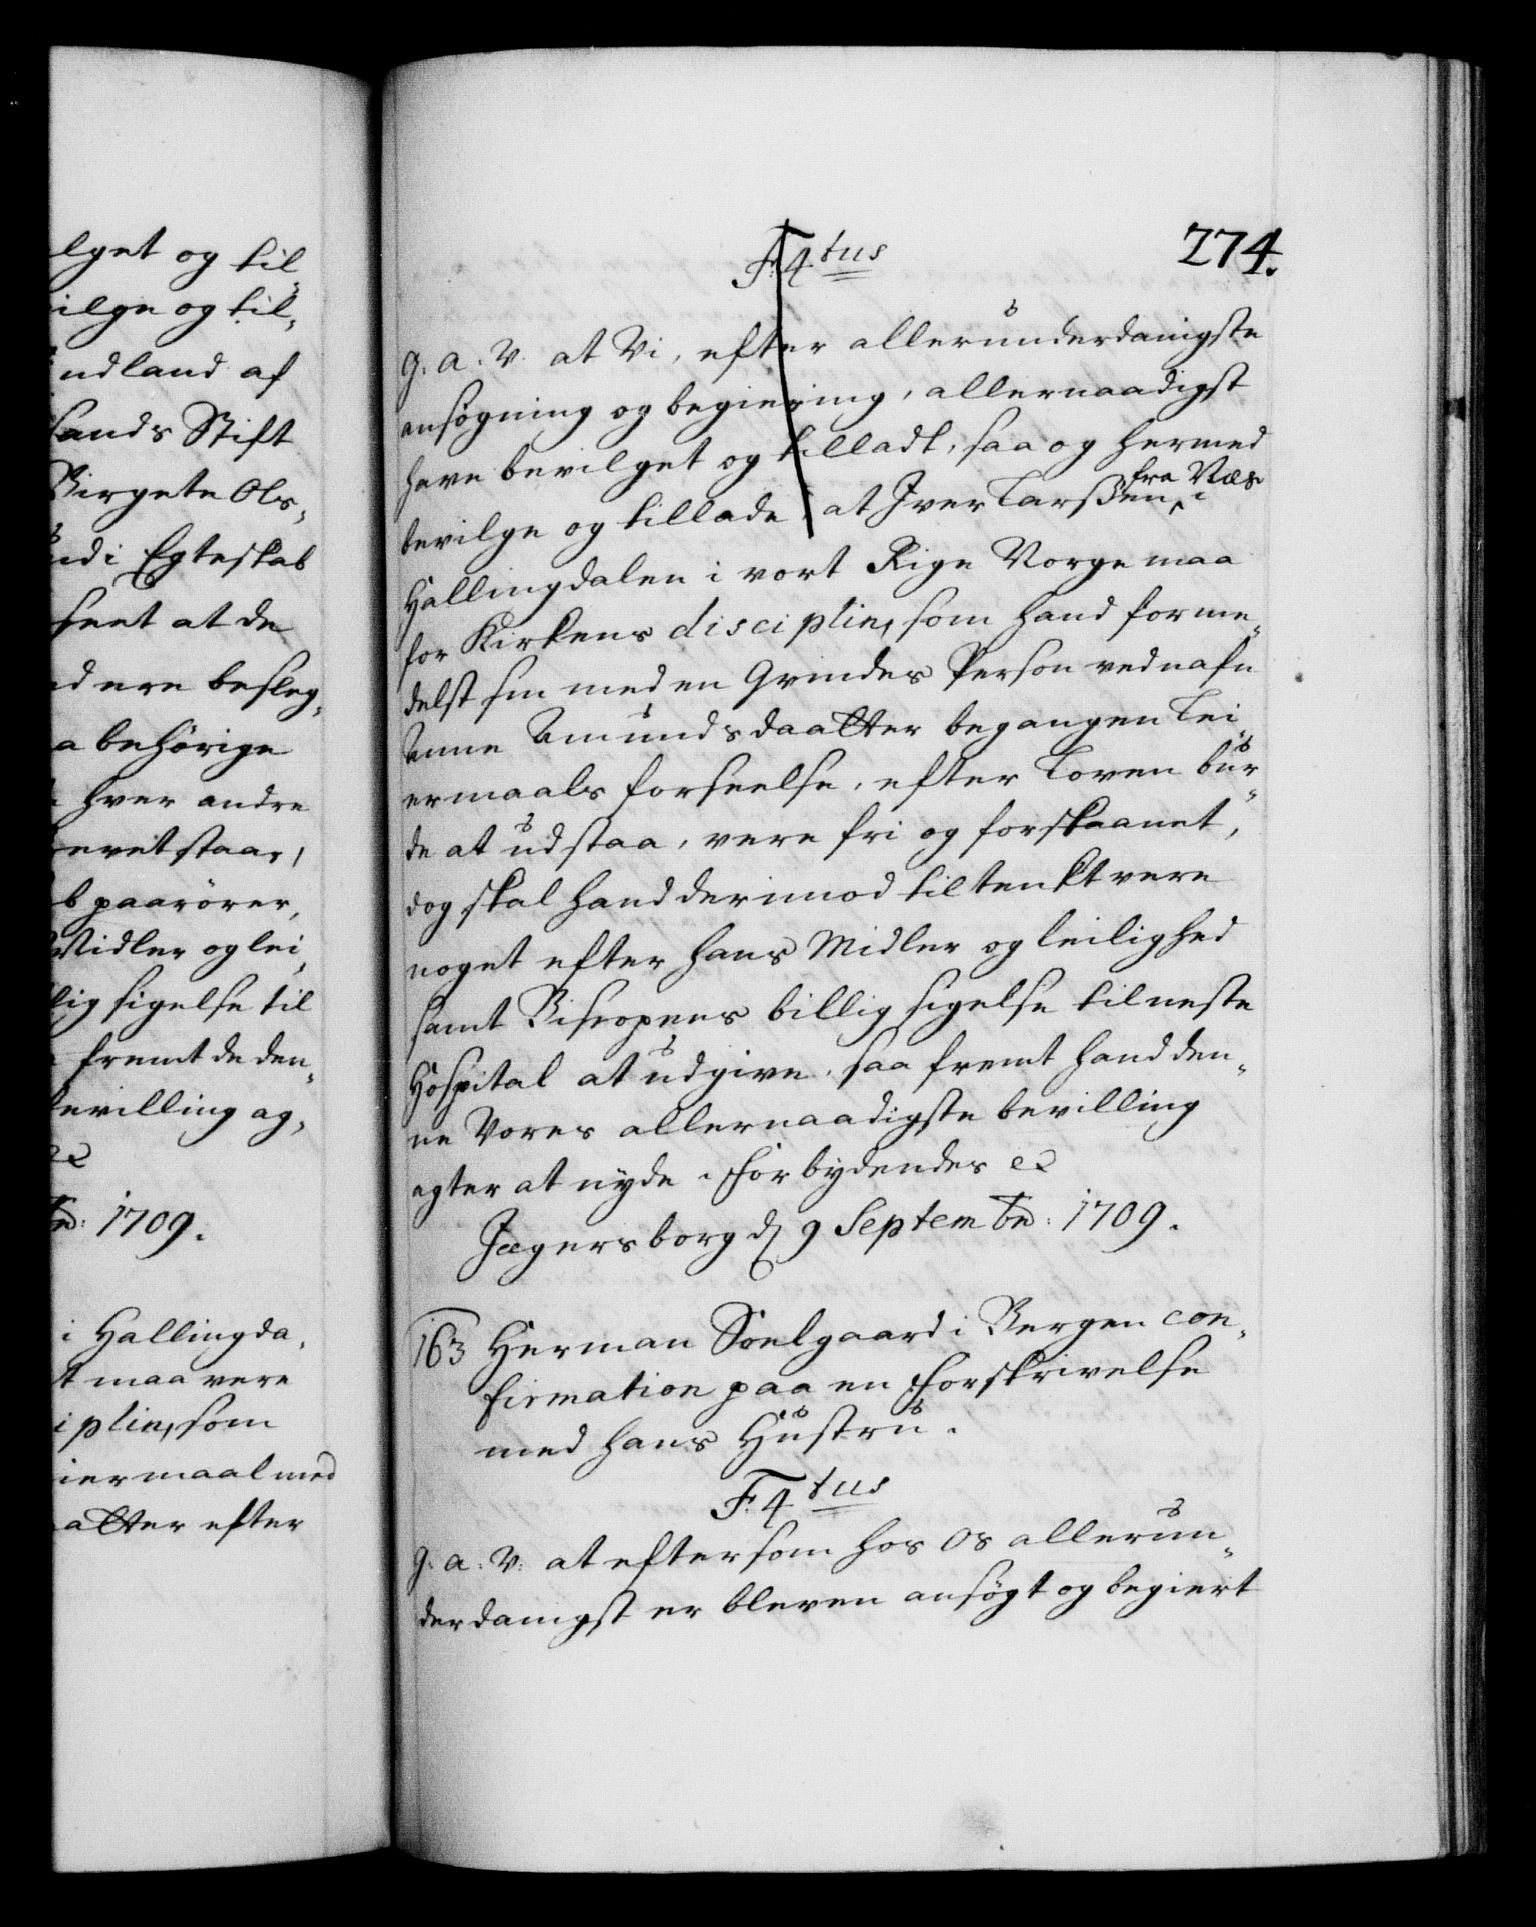 lget og til„
ilge og til„
ndland af
sands Stift
Birgete Ols„
ud i Egteskab
seet at de
d ere besleg„
a behörige
hver andre
revet staar,
b paarörer,
Midler og lei„
lig sigelse til
fremt de den„
bevilling ag„
&c
br: 1709.
i Hallingda„
t maa vere
iplin, som
iermaal med
atter efter
274.
F. 4tus
G. a. V. at Vi, efter allerunderdanigste
ansögning og begiering, allernaadigst
have bevilget og tilladt, saa og hermed
bevilge og tillade, at Iver Larsßen fra Næs i
Hallingdalen i vort Rige Norge maa
for Kirkens disciplin, som hand forme„
delst sin med en Qvindes Person ved nafn
Anne Amundsdaatter begangen Lei„
ermaals forseelse, efter Loven bur„
de at udstaa, vere fri og forskaanet,
dog skal hand derimod tiltenkt vere
noget efter hans Midler og leilighed
samt Biscopens billig sigelse til neste
Hospital at udgive, saa fremt hand den„
ne Vores allernaadigste bevilling
agter at nyde. Forbydendes &c
Jægersborg d 9 Septembr: 1709.
163 Herman Soelgaard i Bergen con„
firmation paa en Forskrivelse
med hans Hustru.
F. 4tus
G. a. V: at eftersom hos Os allerun„
derdanigst er bleven ansögt og begiert